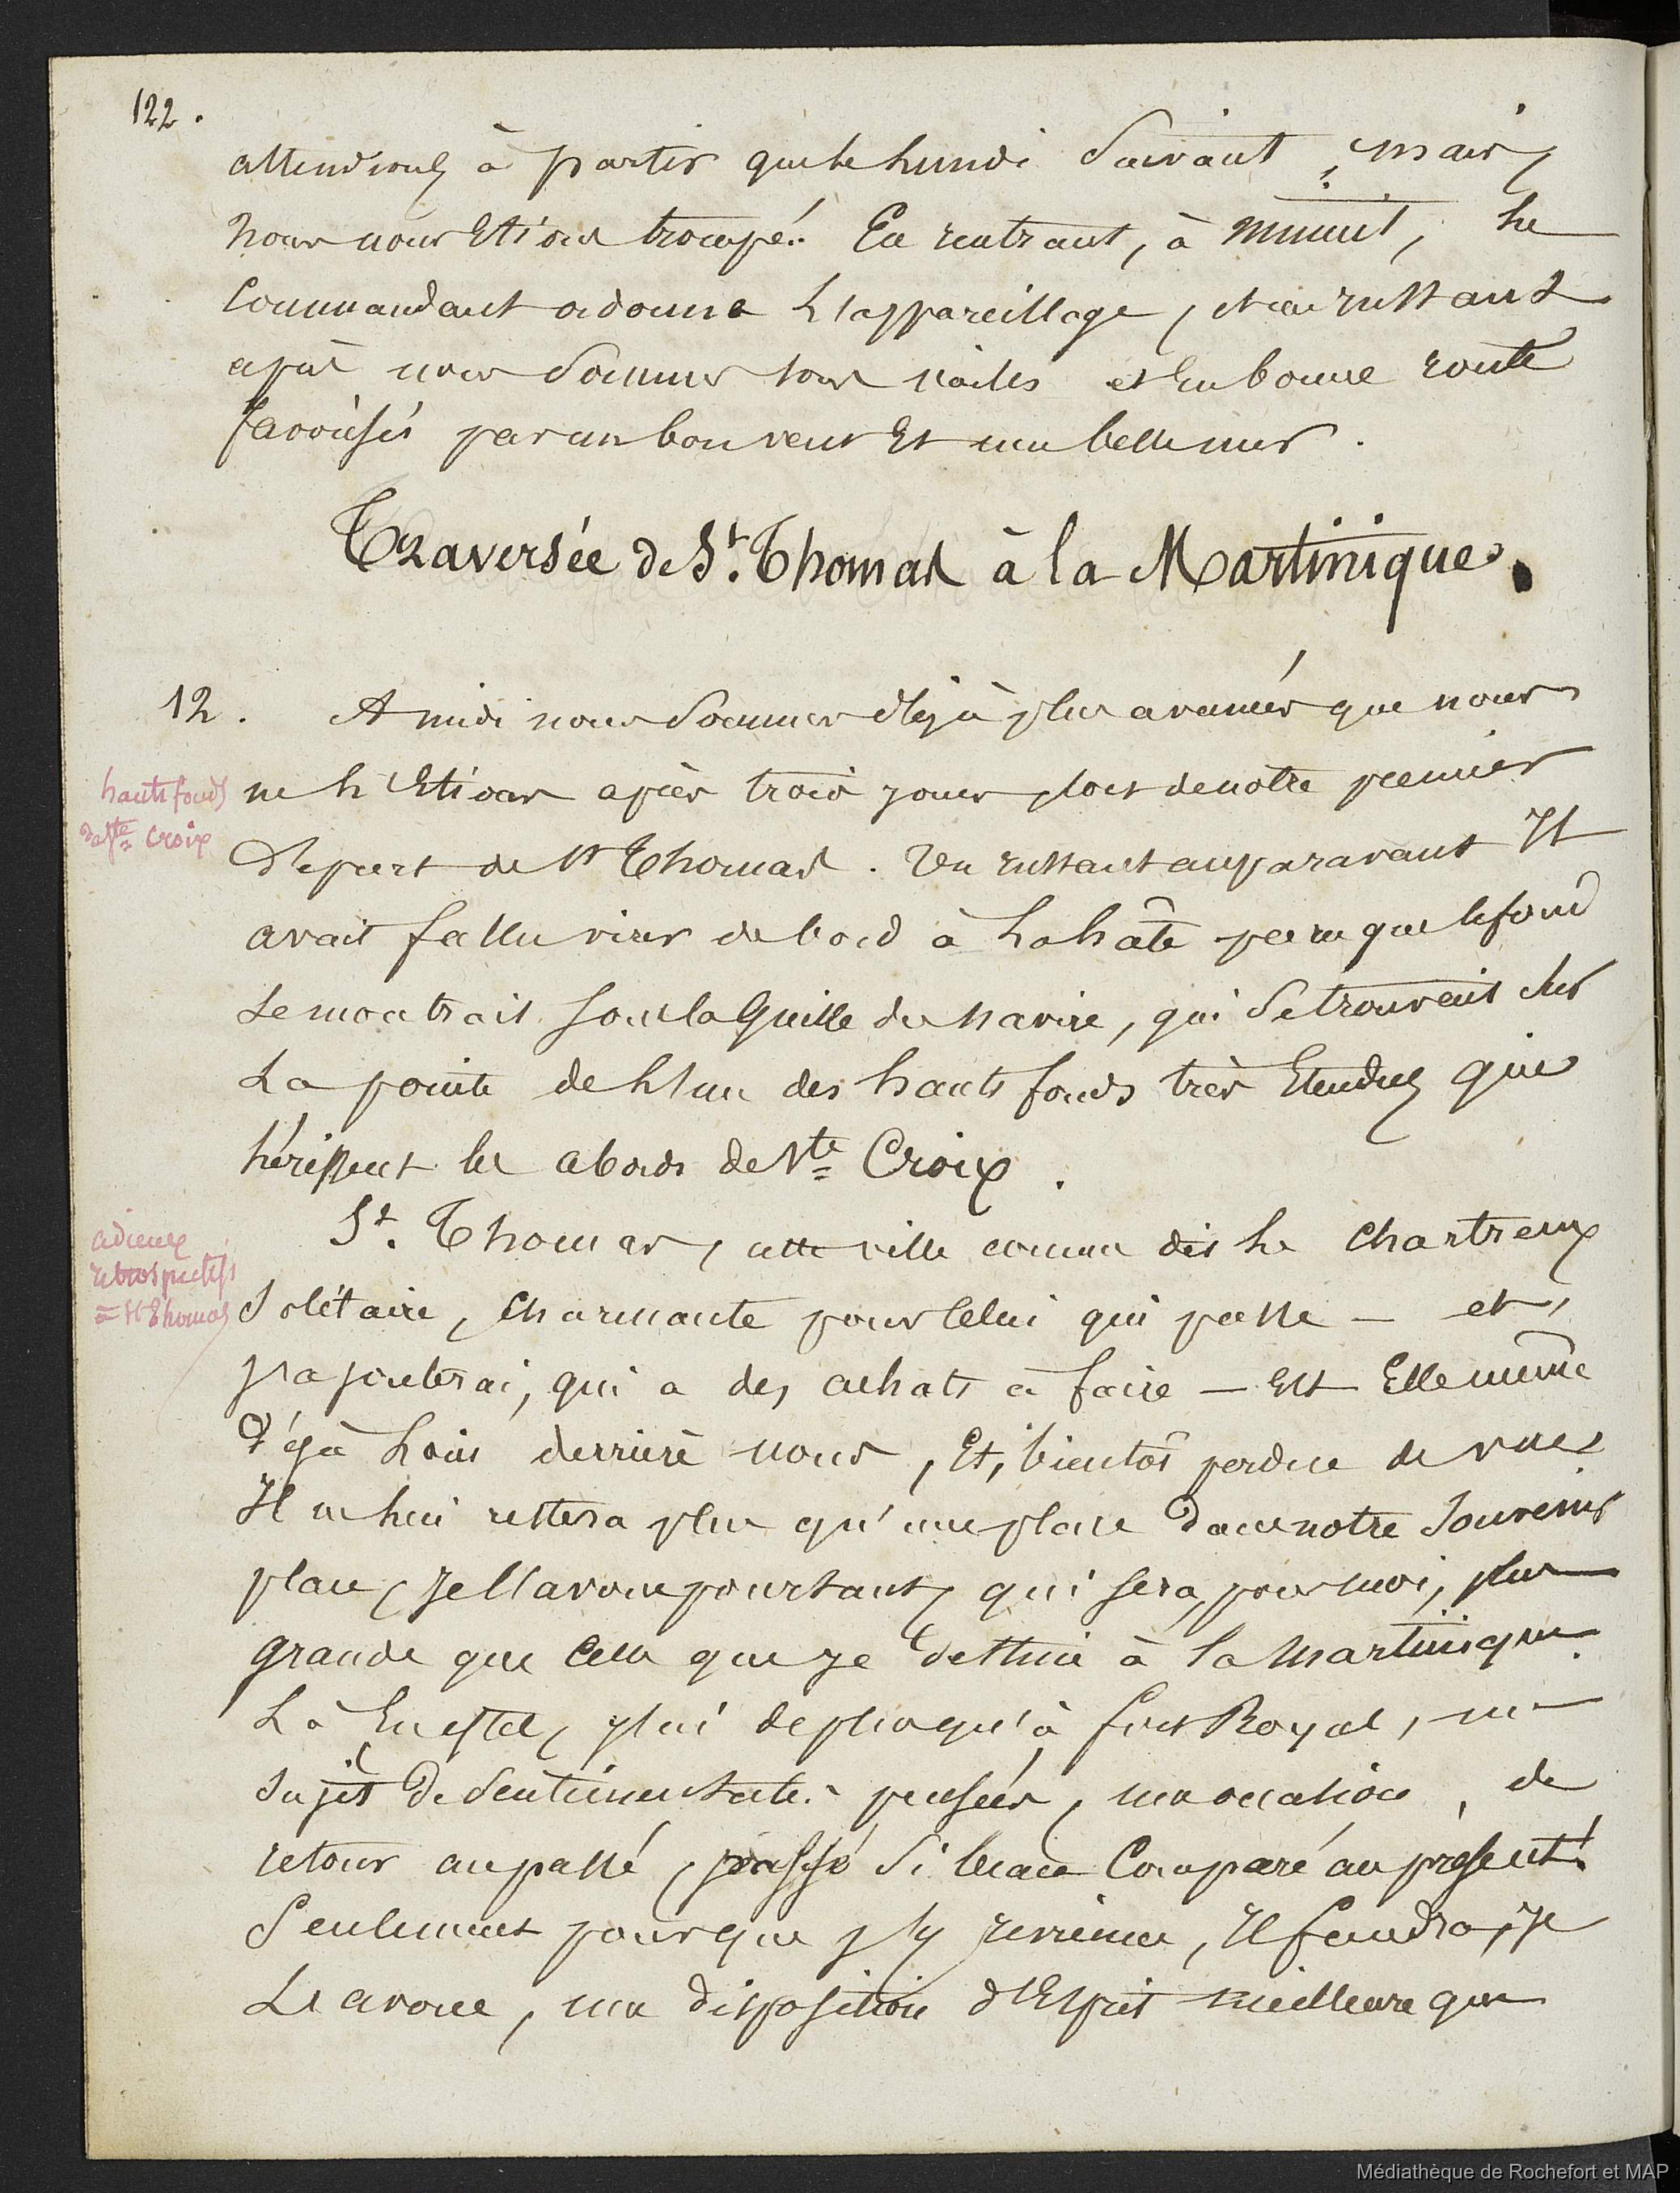 122.
attendions à partir que le lundi suivant, mais
nous nous étions trompés. En rentrant, à minuit, le
Commandant ordonne l'appareillage, et un instant
après nous sommes sous voiles et en bonne route
favorisés par un bon vent et une belle mer.
Traversée de St. Thomas à la Martinique.
12. A midi nous sommes déjà plus avancés que nous
hauts fonds
de Ste Croix
ne l'étions après trois jours lors de notre premier
départ de St Thomas. Un instant auparavant Il
avait fallu virer de bord à la hâte parce que le fond
se montrait sous la Quille du navire, qui se trouvait sur
La pointe de l'un des hauts fonds très étendus qui
hérissent les abords de Ste Croix.
adieux
rétrospectifs
à St Thomas
St. Thomas, cette ville comme dis le Chartreux
Solitaire, charmante pour Celui qui passe – et,
j'ajouterai, qui a des achats à faire – est Elle même
déjà loin derrière nous, Et, bientôt perdue de vue
Il ne lui restera plus qu'une place dans notre Souvenir
place, je l'avoue pourtant, qui sera, pour moi, plus
grande que Celle que je destine à la Martinique.
Là En effet, plus qu'à fort Royal, un
Sujet de Sentimentales pensées, une occasion, de
retour au passé, passé si beau Comparé au présent!
Seulement pour que j'y revienne, Il faudra, je
L'avoue, une disposition d'Esprit meilleure que
Médiathèque de Rochefort et MAP